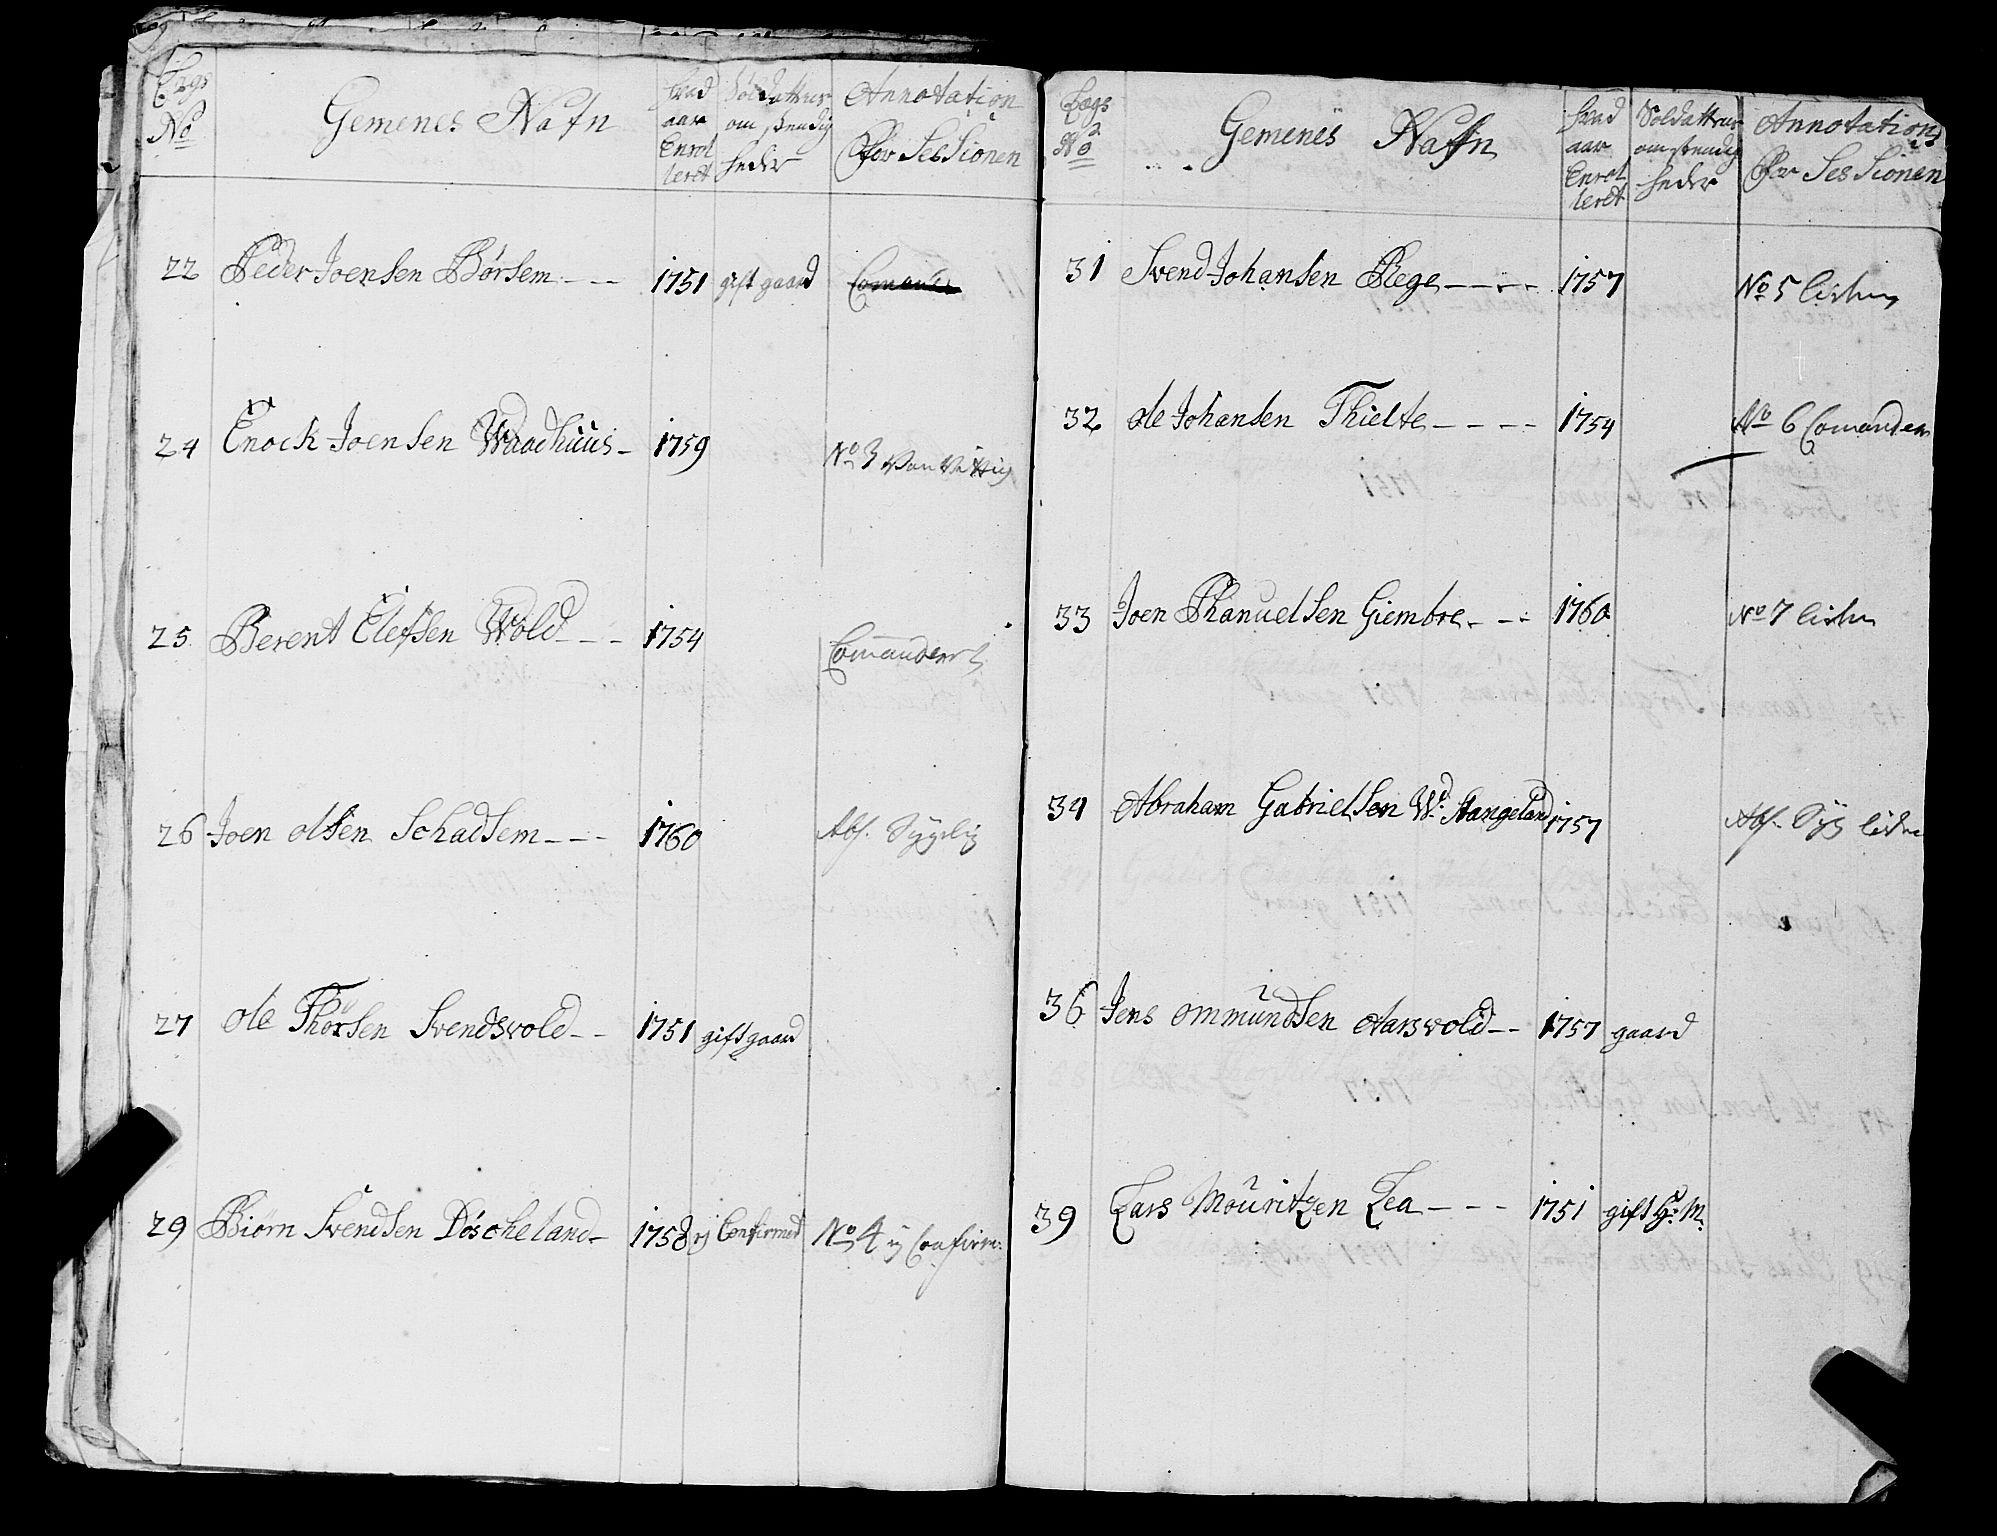 Lægs No
Gemenes Nafn
hvad aar Enrolleret
Soldatternes omstendigheder
Annotation for Sessionen
22 Peder Joensen Børsem 1751 gift gaard
24 Enoch Joensen Waadhuus 1759 No 3 Vanvittig
25 Berent Elefsen Wold 1754 Comandert
26 Joen olsen Schadsem 1760 Abs. Sygelig
27 ole Thørsen Svendsvold 1751 gift gaard
29 Biørn Svendsen Døscheland 1758 ej Confirmed No 4 ej Confirm:
Lægs No
Gemenes Nafn
hvad aar Enrolleret
Soldatternes omstendigheder
Annotation for Sessionen
31 Svend Johansen Rege 1757 No 5
32 ole Johansen Thielte 1754 No 6 Comandert
33 Joen Phanuelsen Giembre 1760 No 7
34 Abraham Gabrielsen Wd. Stangeland 1757 Abs. Syg
36 Jens ommundsen Aarsvold 1757 gaard
39 Lars Mouritzen Lea 1751 gift H: M: